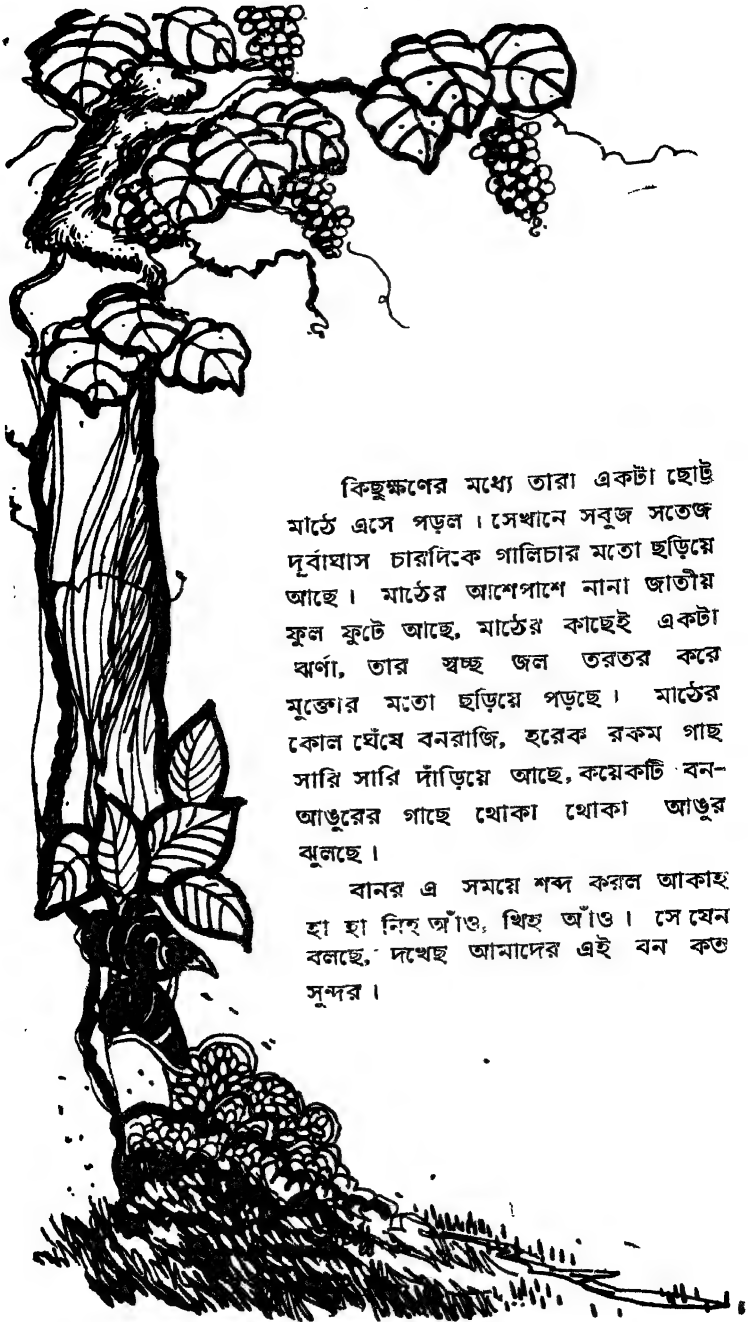 কিছুক্ষণের মধ্যে তারা একটা ছোট্ট
মাঠে এসে পড়ল। সেখানে সবুজ সতেজ
দূর্বাঘাস চারদিকে গালিচার মতো ছড়িয়ে
আছে। মাঠের আশেপাশে নানা জাতীয়
ফুল ফুটে আছে, মাঠের কাছেই একটা
ঝর্ণা, তার স্বচ্ছ জল তরতর করে
মুক্তোর মতো ছড়িয়ে পড়ছে। মাঠের
কোল ঘেঁষে বনরাজি, হরেক রকম গাছ
সারি সারি দাঁড়িয়ে আছে, কয়েকটি বন-
আঙুরের গাছে থোকা থোকা আঙুর
ঝুলছে।
বানর এ সময়ে শব্দ করল আকাহ
হা হা নিহ আঁও, থিহ আঁও। সে যেন
বলছে, দখেছ আমাদের এই বন কত
সুন্দর।